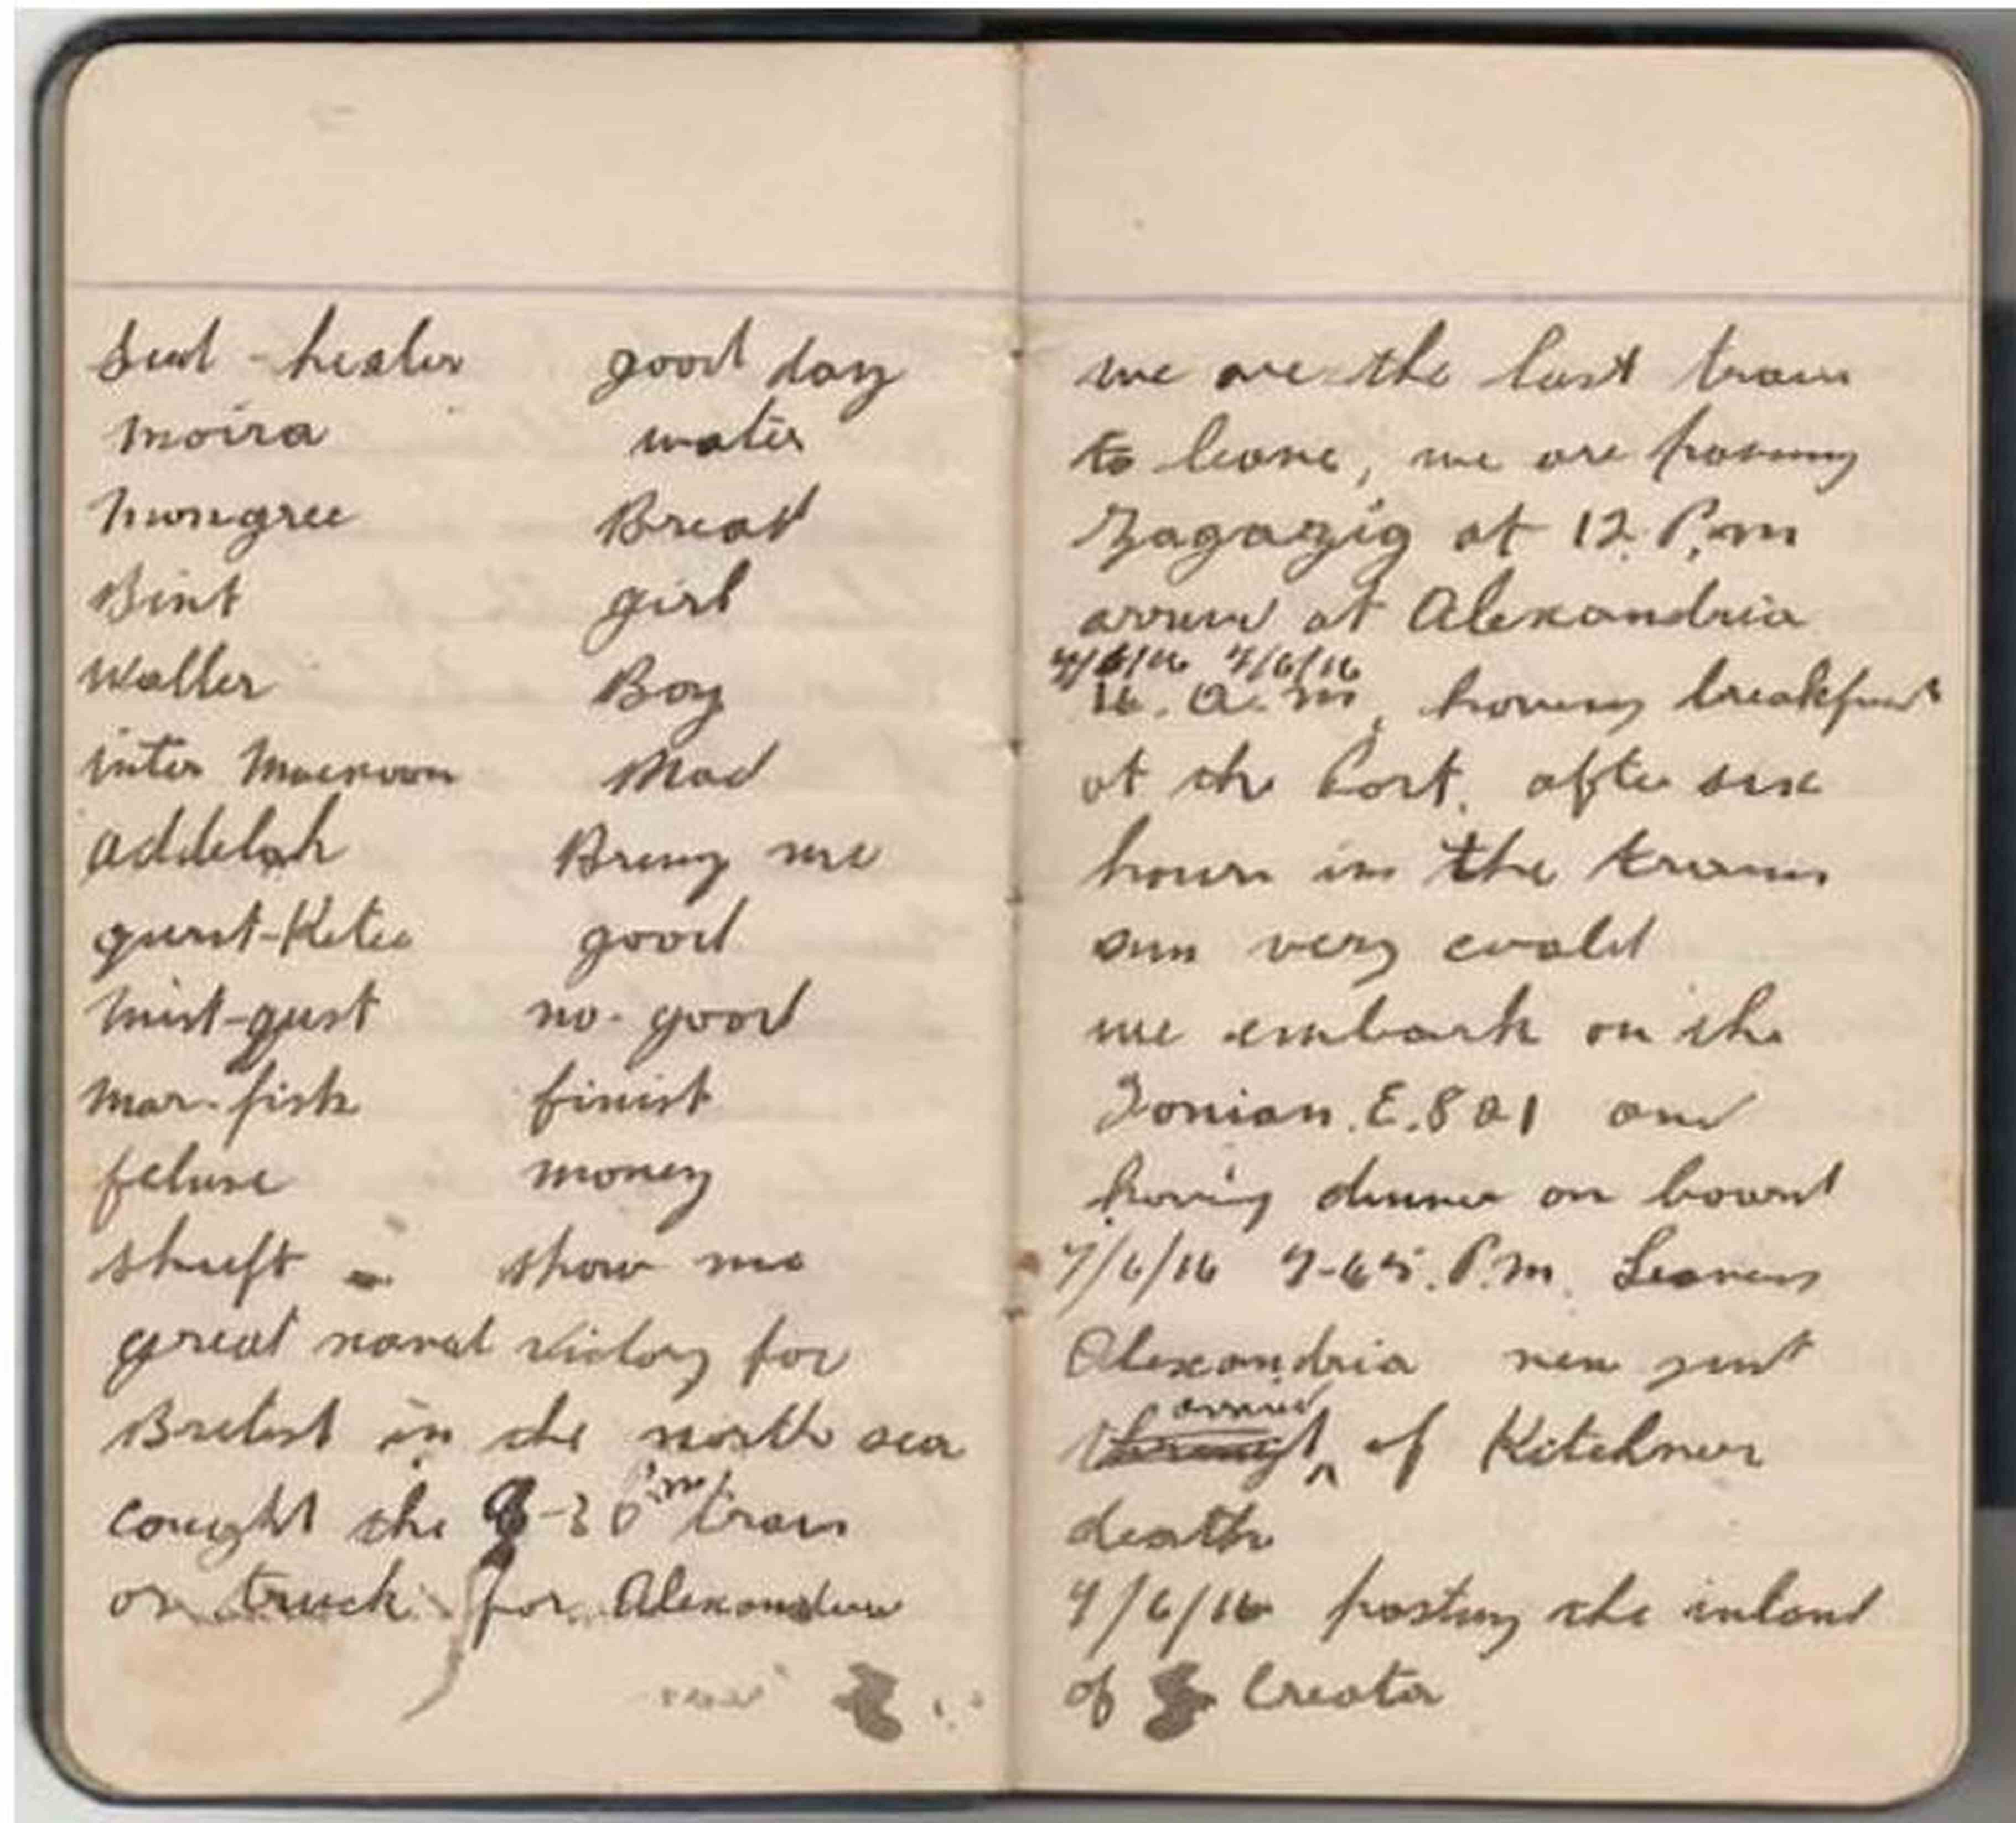 good day
moira water
mungree Bread
Bint girl
Waller Boy
inter Macnoon Mad
addelah Bring me
Kitee good
mist-qust no-good
mar-fish finist
feluse money
shuft - show me
great naval victory for
in the north sea
cought the 8-30 P.m train
on truck for Alexandria
we are the last train
to leave, we are passing
Zagazig at 12. P.m
arrive at Alexandria
7/6/16 7/6/16
a.m, having breakfast
at the Port. after six
hours in the train
sun very could
we embark on the
Ionian. E.801 and
having dinner on board
7/6/16 P.m. Leaving
Alexandria
arrived
of Kitchner
death
the island
of Creater